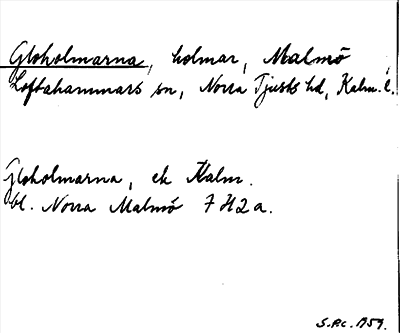 Gloholmarna, holmar, Malmö
Loftahammars sn, Norra Tjusts hd, Kalm. l.
Gloholmarna, ek Kalm.
bl. Norra Malmö 7 H2a.
S.P.C. 1959.